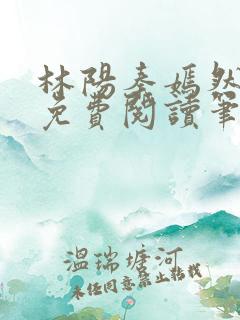 林陽秦嫣然
免費閱讀筆
溫瑞塘河
未経同意禁止転載